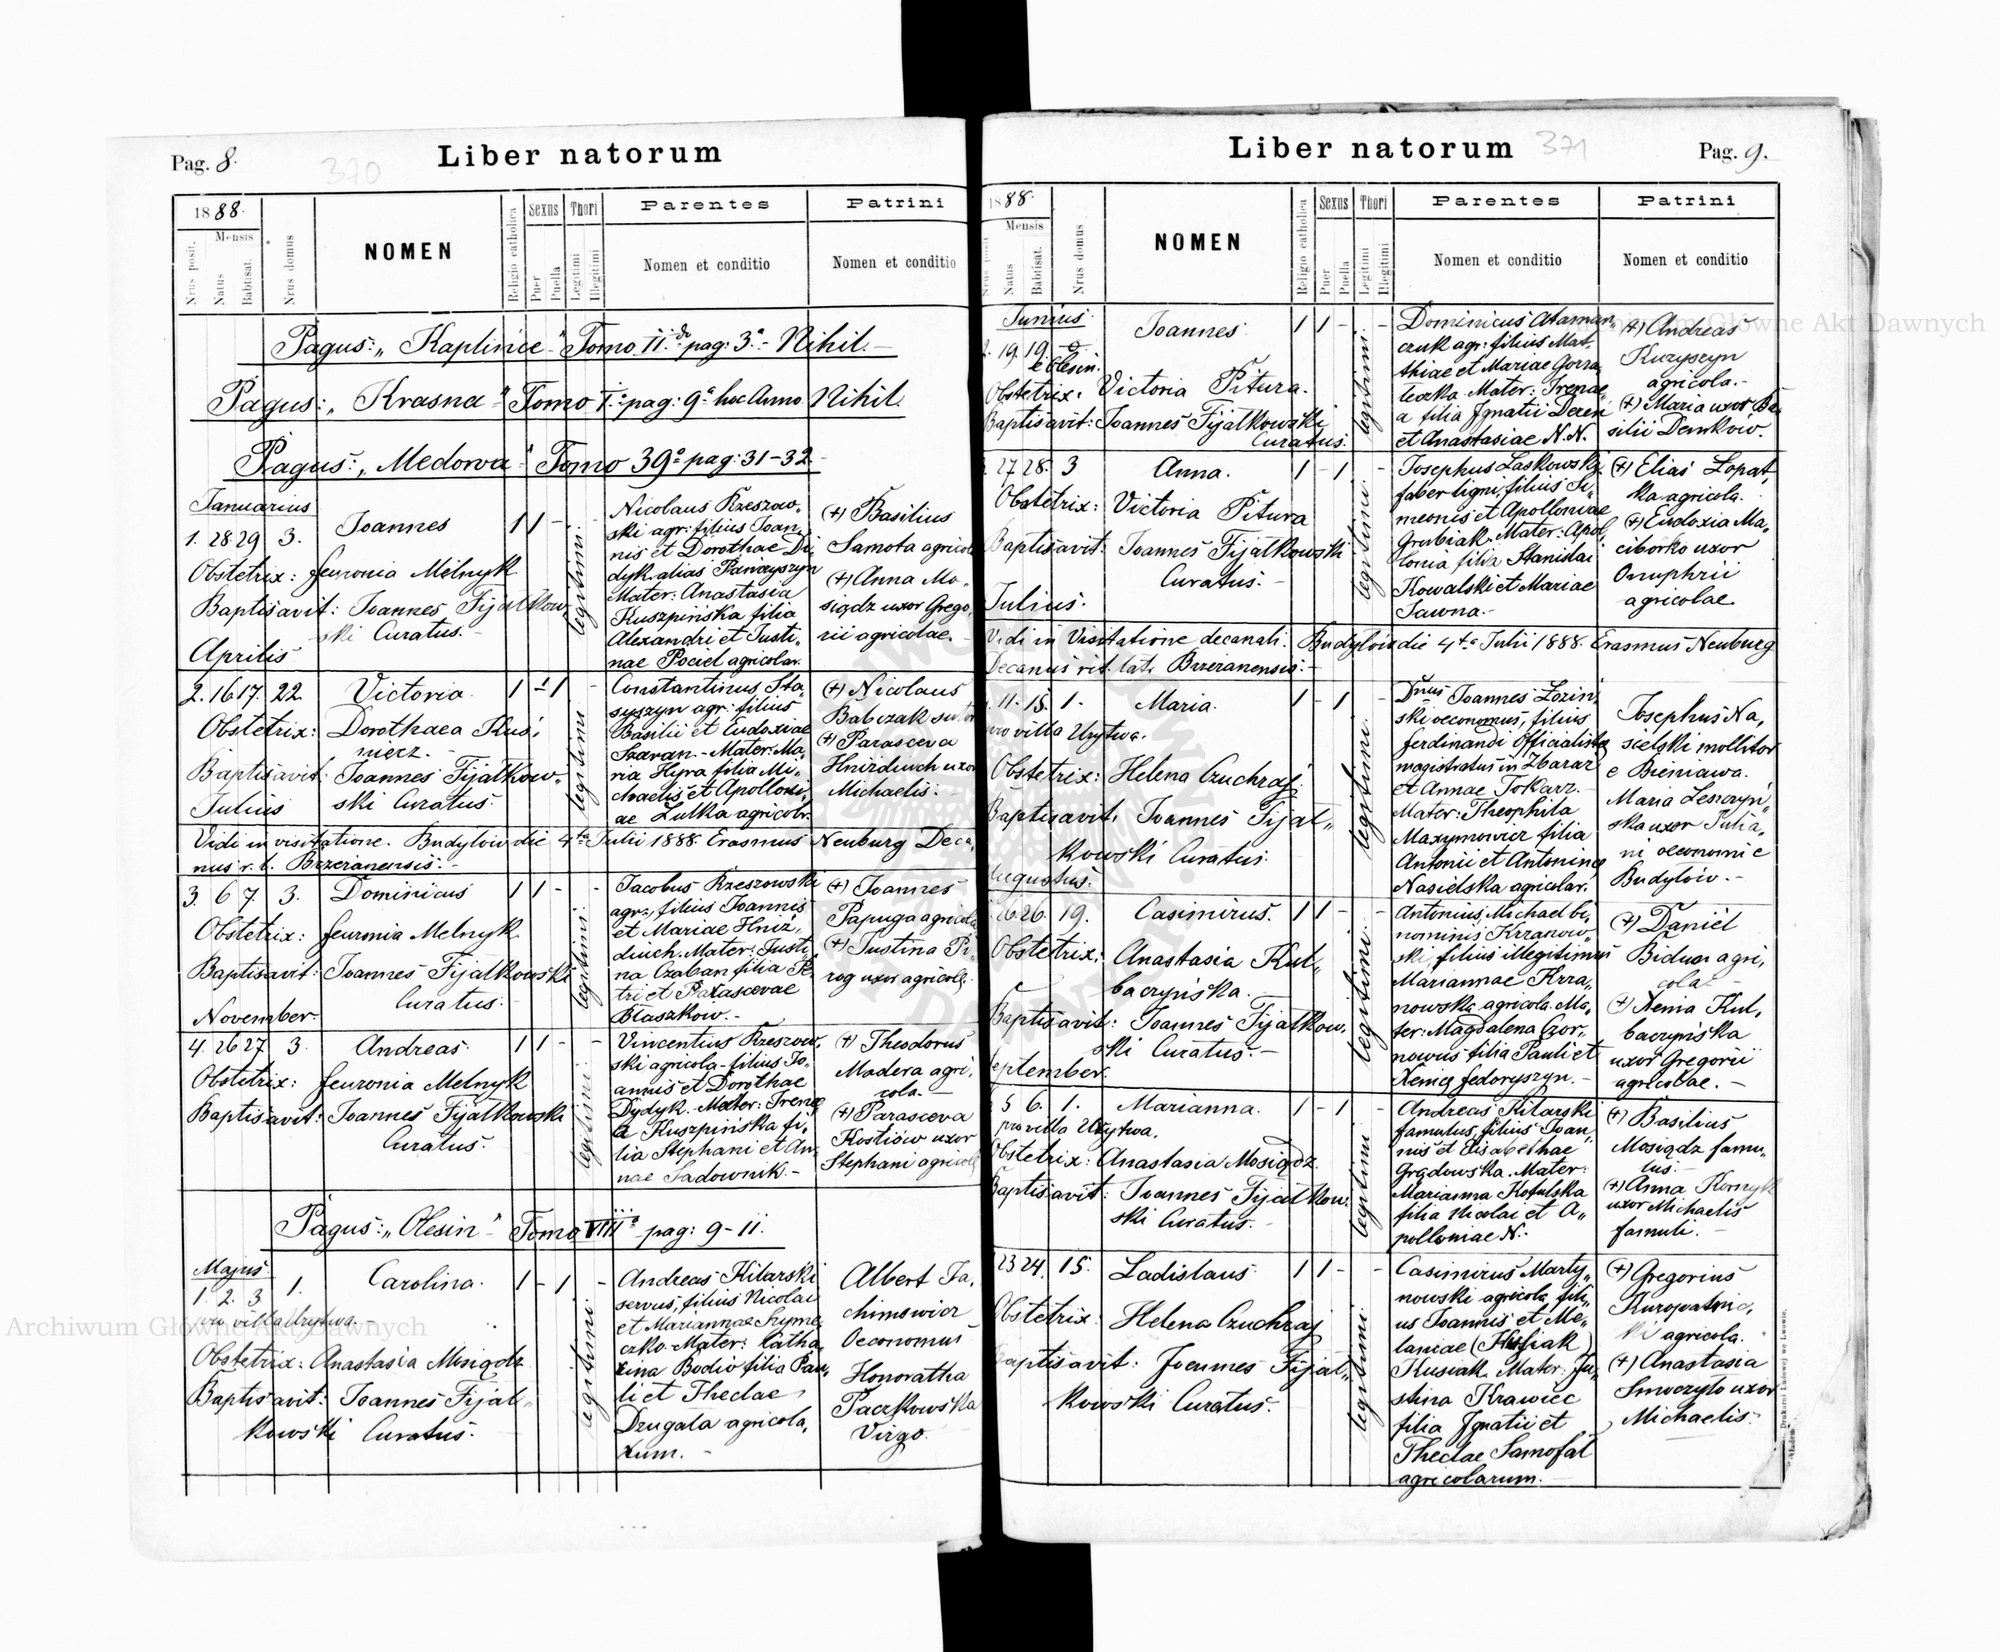 Pag. 8.
370
Liber natorum
1888.
Mensis
Nrus posit.
Natus
Babtisat.
Nrus domus
NOMEN
Religio catholica
Sexus
Puer
Puella
Thori
Legitimi
Illegitimi
Parentes
Nomen et conditio
Patrini
Nomen et conditio
Pagus: „Kaplince" Tomo II.do pag: 3.a - Nihil. -
Pagus: „Krasna" Tomo I.o pag: 9.a hoc Anno Nihil.
Pagus: „Medowa" Tomo 39.o pag: 31-32.
Januarius
1. 28 29 3. Joannes 1 1 - -
legitimi
Obstetrix: feuronia Melnyk
Baptisavit: Joannes Fijałkow-
ski Curatus. -
Nicolaus Rzeszow-
ski agr: filius Joan-
nis et Dorothae Dy
dyk alias Pawzyszyn
Mater: Anastasia
Kuszpińska filia
Alexandri et Justi-
nae Pociel agricolar.
(+) Basilius
Samota agricola
(+) Anna Mo-
siądz uxor Grego,
rii agricolae. -
Aprilis
2. 16 17. 22. Victoria. 1 - 1 -
legitimi
Obstetrix: Dorothaea Kuś,
nierz. -
Baptisavit: Joannes Fijałkow-
ski Curatus.
Constantinus Sta,
syszyn agr: filius
Basilii et Eudoxiae
Szarvan. - Mater: Ma,
ria Hyra filia Mi,
chaelis et Apolloni,
ae Lulka agricolr.
(+) Nicolaus
Babczak sutor
(+) Parasceva
Hnizdiuch uxor
Michaelis. -
Julius
Vidi in visitatione. Budylow die 4ta Julii 1888. Erasmus Neuburg Deca,
nus r. l. Brzezanensis. -
3. 6 7. 3. Dominicus 1 1 - -
legitimi
Obstetrix: feuronia Melnyk.
Baptisavit: Joannes Fijałkowski
Curatus.
Jacobus Rzeszowski
agr., filius Joannis
et Mariae Hniz,
diuch. Mater: Justi,
na Czaban filia Pe
tri et Parascevae
Błaszkow. -
(+) Joannes
Papuga agricola
(+) Justina Pi,
rog uxor agricolę.
November.
4. 26 27. 3. Andreas. 1 1 - -
legitimi
Obstetrix: feuronia Melnyk
Baptisavit: Joannes Fijałkowski
Curatus.
Vincentius Rzeszow,
ski agricola - filius Jo-
annis et Dorothae
Dydyk. Mater: Irene,
a Kuszpińska fi,
lia Stephani et An,
nae Sadownik. -
(+) Theodorus
Madera agri,
cola. -
(+) Parasceva
Kostiów uxor
Stephani agricolę
Pagus: „Olesin" Tomo VIII.o pag: 9-11.
Majus.
1. 2. 3 1. Carolina. 1 - 1 -
legitimi
pro villa Urytwa. -
Obstetrix: Anastasia Mosiądz
Baptisavit: Joannes Fijał-
kowski Curatus.
Andreas Kitarski
servus, filius Nicolai
et Mariannae Szyme
czko. Mater: Catha,
rina Bodio filia Pau,
li et Theclae
Dzugała agricola,
rum. -
Albert Ja,
chimowicz
Oeconomus
Honoratha
Paczkowska
Virgo.
Liber natorum
371
Pag. 9.
1888.
Mensis
Nrus posit
Natus
Babtisat.
Nrus domus
NOMEN
Religio catholica
Sexus
Puer
Puella
Thori
Legitimi
Illegitimi
Parentes
Nomen et conditio
Patrini
Nomen et conditio
Junius.
2. 19. 19. Joannes. 1 1 - -
e Olesin.
legitimi
Obstetrix: Victoria Pitura.
Baptisavit: Joannes Fijałkowski
Curatus.
Dominicus Ataman,
czuk agr: filius Mat-
thiae et Mariae Gorra
leczka Mater: Irenae
a filia Ignatii Dereń
et Anastasiae N.N.
(+) Andreas
Kuzyszyn
agricola. -
(+) Maria uxor Ba
silii Demków.
27 28. 3 Anna. 1 - 1 -
legitimi
Obstetrix: Victoria Pitura
Baptisavit: Joannes Fijałkowski
Curatus. -
Josephus Laskowski
faber ligni, filius Si-
meonis et Apolloniae
Grubiak. Mater: Apol
lonia filia Stanislai
Kowalski et Mariae
Sawna. -
(+) Elias Łopat,
ka agricola.
(+) Eudoxia Ma,
ciborko uxor
Onuphrii
agricolae.
Julius.
Vidi in Visitatione decanali. Budylow die 4ta Julii 1888. Erasmus Neuburg
Decanus rit. lat. Brzezanensis. -
11. 15. 1. Maria. 1 - 1 -
pro villa Urytwa.
legitimi
Obstetrix: Helena Czuchraj
Baptisavit. Joannes Fijał„
kowski Curatus.
Dnus Joannes Łozin,
ski oeconomus, filius
ferdinandi Officialista
magistratus in Zbaraż
et Annae Tokarz. -
Mater: Theophila
Maxymowicz filia
Antonii et Antoninę
Nasielska agricolar.
Josephus Na,
sielski mollitor
e Bieniawa.
Maria Leszczyń„
ska uxor Julia,
ni oeconomi e
Budyłów. -
Augustus.
26. 26. 19. Casimirus. 1 1 - -
legitimi
Obstetrix: Anastasia Kul„
baczyńska. -
Baptisavit: Joannes Fijałkow.
ski Curatus. -
Antonius, Michael bi,
nominis Krzanow-
ski filius illegitimus
Mariannae Krza,
nowska agricola. Ma,
ter: Magdalena Czor,
nowus filia Pauli et
Xenię fedoryszyn. -
(+) Daniel
Biduca agri,
cola -
(+) Xenia Kul,
baczyńska
uxor Gregorii
agricolae. -
September.
5 6. 1. Marianna. 1 - 1 -
pro villa Urytwa.
legitimi
Obstetrix: Anastasia Mosiądz.
Baptisavit: Joannes Fijałkow.
ski Curatus. -
Andreas Kitarski
famulus, filius Joan,
nis et Elisabethae
Grądowska. Mater:
Marianna Kotulska
filia Nicolai et A„
polloniae N.
(+) Basilius
Mosiądz famu„
lus.
(+) Anna Kornyk
uxor Michaelis
famuli. -
23 24. 15. Ladislaus. 1 1 - -
legitimi
Obstetrix: Helena Czuchraj
Baptisavit: Joannes Fijał„
kowski Curatus.
Casimirus Marty„
nowski agricola, fili„
us Joannis et Me,
laniae
Kusiak. Mater: Ju,
stina Krawiec
filia Ignatii et
Theclae Samofał
agricolarum. -
(+) Gregorius
Kuropatnic,
ki agricola.
(+) Anastasia
Smoczyło uxor
Michaelis.
Drukarni Ludowej we Lwowie.
Archiwum Główne Akt Dawnych
Archiwum Główne Akt Dawnych